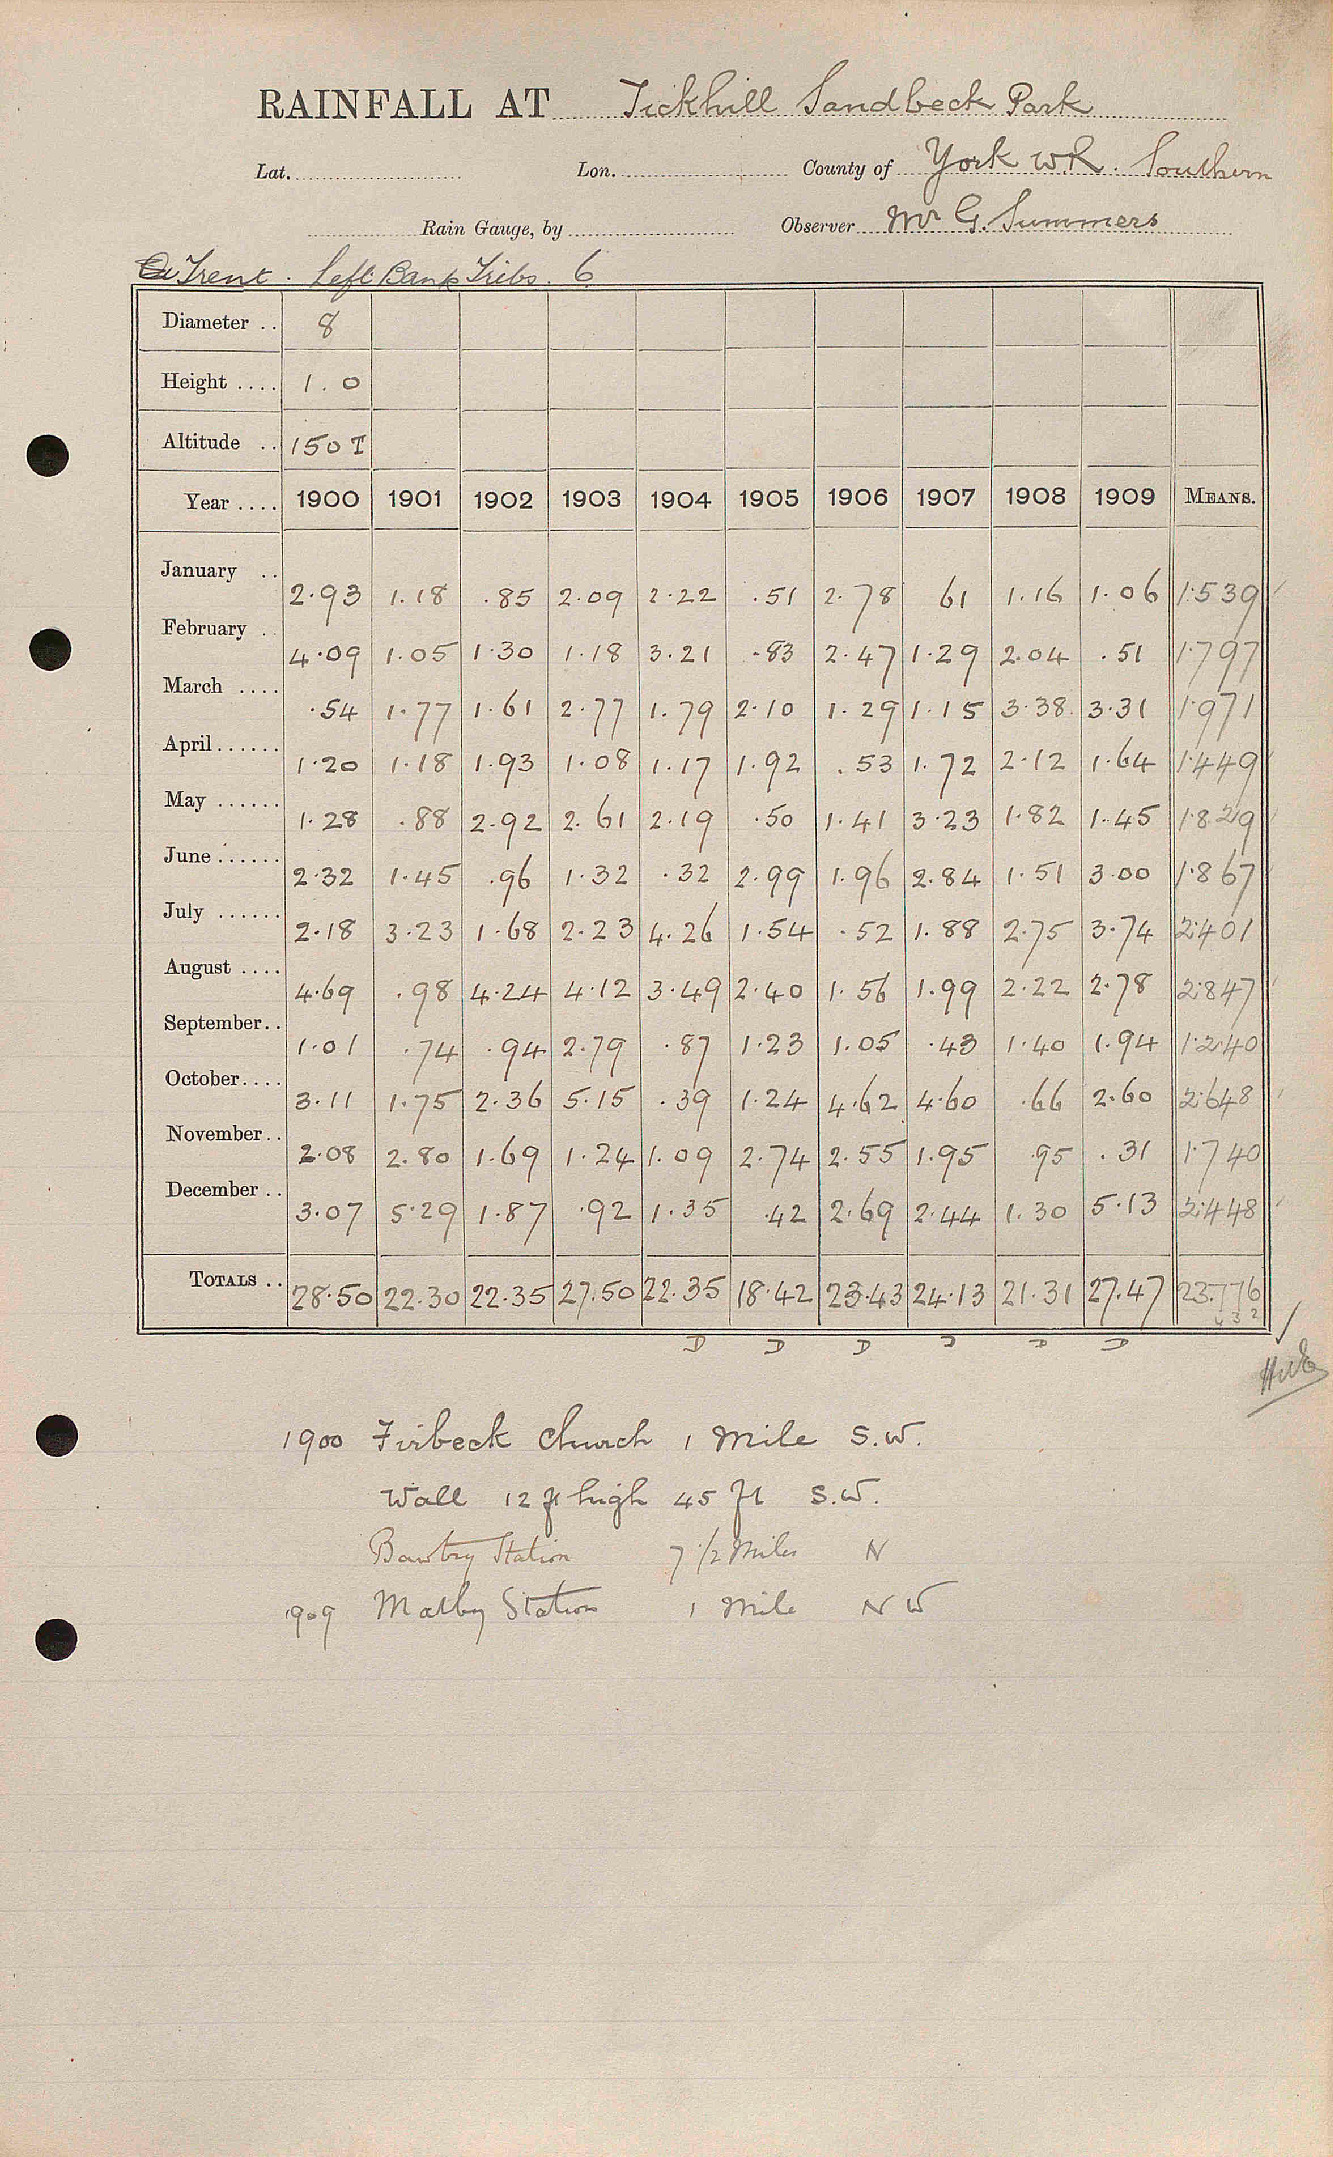 RAINFALL AT Tickhill Sandbeck Park
Lat. Lon. County of York W.R. Southern
Rain Gauge, by Observer Mr G. Summers
Trent. Left Bank Tribs. 6
Diameter .. 8
Height .... 1.0
Altitude .. 150 T
Year .... 1900 1901 1902 1903 1904 1905 1906 1907 1908 1909 MEANS.
January .. 2.93 1.18 .85 2.09 2.22 .51 2.78 61 1.16 1.06 1.539
February .. 4.09 1.05 1.30 1.18 3.21 .83 2.47 1.29 2.04 .51 1.797
March .... .54 1.77 1.61 2.77 1.79 2.10 1.29 1.15 3.38 3.31 1.971
April...... 1.20 1.18 1.93 1.08 1.17 1.92 .53 1.72 2.12 1.64 1.449
May ...... 1.28 .88 2.92 2.61 2.19 .50 1.41 3.23 1.82 1.45 1.829
June ...... 2.32 1.45 .96 1.32 .32 2.99 1.96 2.84 1.51 3.00 1.867
July ...... 2.18 3.23 1.68 2.23 4.26 1.54 .52 1.88 2.75 3.74 2.401
August .... 4.69 .98 4.24 4.12 3.49 2.40 1.56 1.99 2.22 2.78 2.847
September.. 1.01 .74 .94 2.79 .87 1.23 1.05 .43 1.40 1.94 1.240
October.... 3.11 1.75 2.36 5.15 .39 1.24 4.62 4.60 .66 2.60 2.648
November.. 2.08 2.80 1.69 1.24 1.09 2.74 2.55 1.95 .95 .31 1.740
December .. 3.07 5.29 1.87 .92 1.35 .42 2.69 2.44 1.30 5.13 2.448
TOTALS .. 28.50 22.30 22.35 27.50 22.35 18.42 23.43 24.13 21.31 27.47 23.776
4 3 2
D D D D D D
1900 Firbeck Church 1 Mile S.W.
Wall 12 ft high 45 ft S.W.
Bawtry Station 7 1/2 Miles N
1909 Maltby Station 1 Mile N W